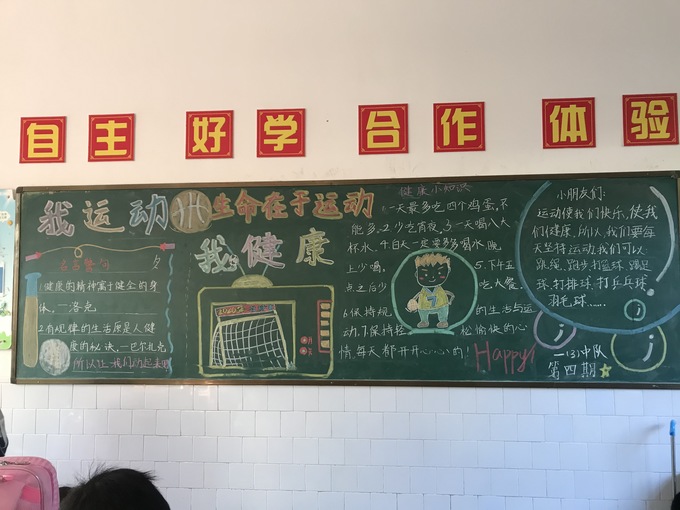 自主 好学 合作 体验
我运动
生命在于运动
我健康
名言警句
1健康的精神寓于健全的身
体,—洛克
2有规律的生活原是人健
度的秘诀,—巴尔扎克
所以让我们动起来吧
健康小知识
1.一天最多吃四个鸡蛋,不
能多.2少吃宵夜.3一天喝八大
杯水,4白天一定要多多喝水,晚
上少喝。
5.下午五
点之后少
吃大餐.
6.保持规
的生活与运
动.7.保持轻
松愉快的心
情,每天都开开心心的!
Happy!
小朋友们:
运动使我们快乐,使我
们健康,所以,我们要每
天坚持运动,我们可以
跳绳.跑步.打篮球.踢足
球.打排球.打乒乓球.
羽毛球……
一(3)中队
第四期